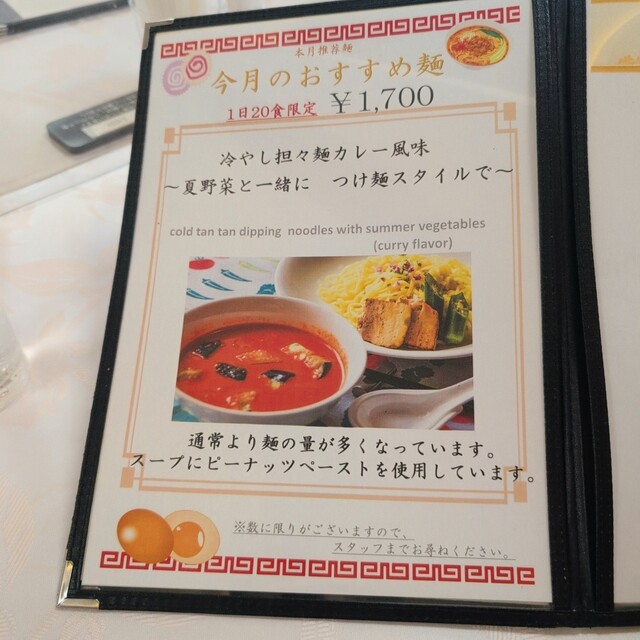 本月推荐麺
今月のおすすめ麺
1日20食限定 ￥1,700
冷やし担々麺カレー風味
～夏野菜と一緒に　つけ麺スタイルで～
cold tan tan dipping noodles with summer vegetables
(curry flavor)
通常より麺の量が多くなっています。
スープにピーナッツペーストを使用しています。
※数に限りがございますので、
スタッフまでお尋ねください。